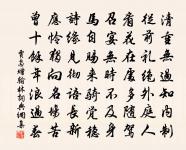 清重無過知內制
從前禮絕外庭人
看花在處多隨駕
召宴無時不及旬
馬自賜來騎覺穩
詩緣見徹語長新
應憐獨向名場苦
曾十餘年浪過春
賈島贈翰林